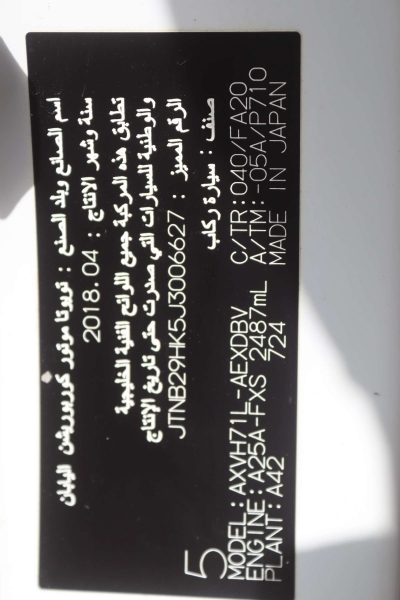 اسم الصانع وبلد الصنع : تويوتا موتور كوربوريشن اليابان
سنة وشهر الانتاج : 2018.04
تطابق هذه المركبة جميع اللوائح الفنية الخليجية
والوطنية للسيارات التي صدرت حتى تاريخ الإنتاج
الرقم المميز : JTNB29HK5J3006627
صنف : سيارة ركاب
5
MODEL: AXVH71L-AEXDBV C/TR: 040/FA20
ENGINE: A25A-FXS 2487mL A/TM: -05A/P710
PLANT: A42 724 MADE IN JAPAN